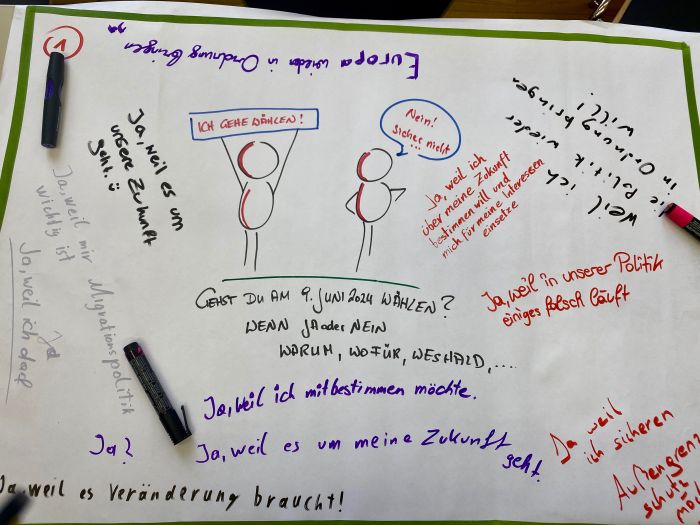 1
Europa wieder in Ordnung bringen
ICH GEHE WÄHLEN!
Nein!
Sicher nicht
...
Ja, weil es um
unsere Zukunft
geht. ü
weil ich
die Politik wieder
in Ordnung bringen
will!
Ja, weil ich
über meine Zukunft
bestimmen will und
mich für meine Interessen
einsetze
Ja, weil mir Migrationspolitik
wichtig ist
Ja
Ja, weil ich darf
GEHST DU AM 9. JUNI 2024 WÄHLEN?
WENN JA oder NEIN
WARUM, WOFÜR, WESHALB, ....
Ja, weil in unserer Politik
einiges falsch läuft
Ja, weil ich mitbestimmen möchte.
Ja?
Ja, weil es um meine Zukunft
geht.
Ja weil
ich sicheren
Außengrenz
schutz
möc
Ja, weil es Veränderung braucht!